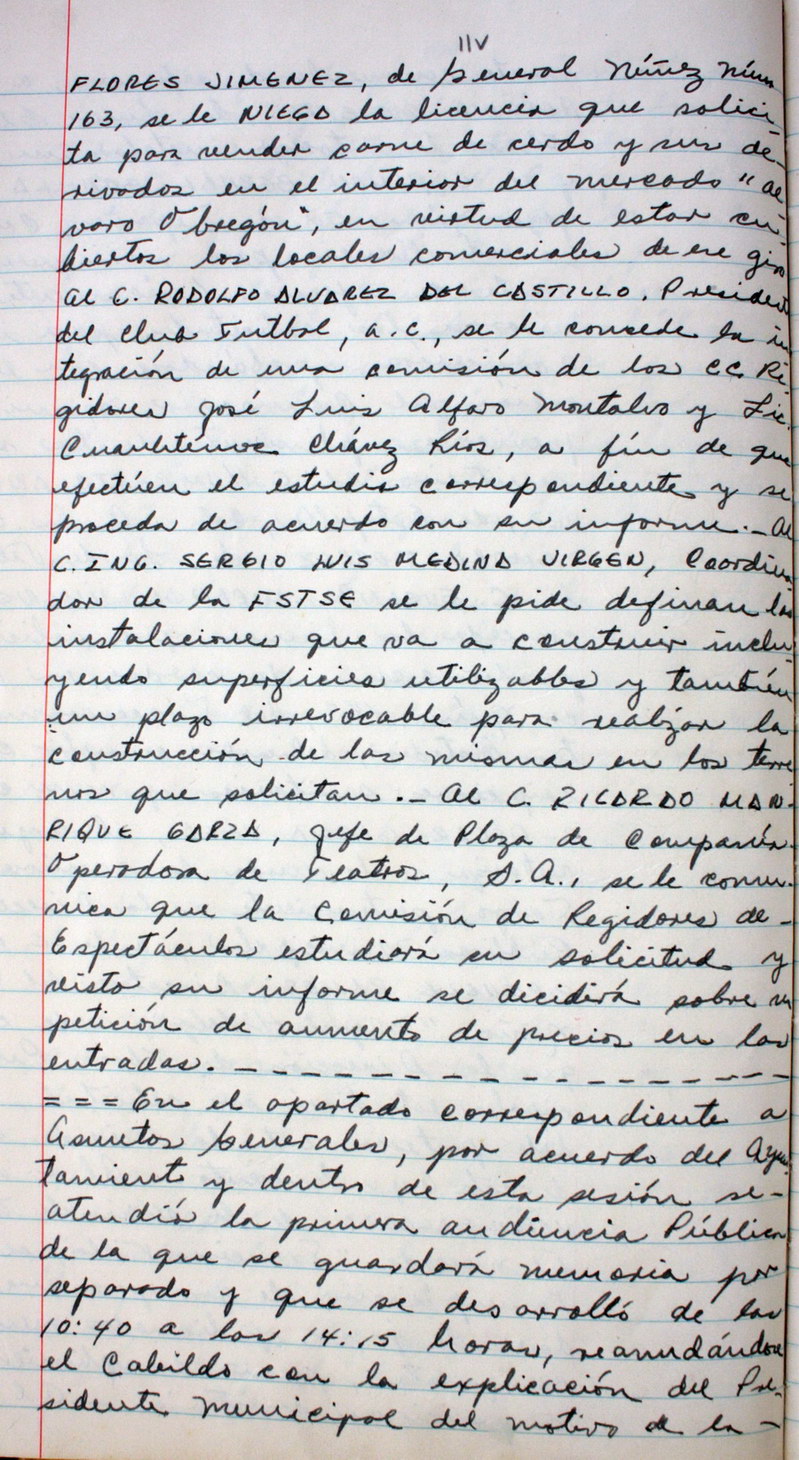 11v
FLORES JIMENEZ, de General Núñez Núm
163, se le NIEGA la licencia que solici
ta para vender carne de cerdo y sus de-
rivados en el interior del mercado "al
varo Obregón", en virtud de estar cu-
biertos los locales comerciales de ese giro
Al C. RODOLFO ALVAREZ DEL CASTILLO, President
del Club Futbol, a.c., se le concede la in
tegración de una comisión de los CC. Re-
gidores José Luis Alfaro Montalvo y Lic.
Cuauhtémoc Chávez Ríos, a fín de que
efectúen el estudio correspondiente y se
proceda de acuerdo con su informe.- Al
C. ING. SERGIO LUIS MEDINA VIRGEN, Coordina
dor de la FSTSE se le pide definan las
instalaciones que va a construir inclu
yendo superficies utilizables y también
un plazo irrevocable para realizar la
construcción de las mismas en los terre
nos que solicitan.- Al C. RICARDO MAN-
RIQUE GARZA, Jefe de Plaza de Compañía
Operadora de Teatros, S.A., se le comu-
nica que la Comisión de Regidores de-
Espectáculos estudiará su solicitud y
visto su informe se dicidirá sobre su
petición de aumento de precios en las
entradas. - - - - - - - - - - - - - - - -
= = = En el apartado correspondiente a
Asuntos Generales, por acuerdo del Ayun
tamiento y dentro de esta sesión se-
atendió la primera audiencia Pública
de la que se guardará memoria por
separado y que se desarrolló de las
10:40 a las 14:15 horas, reanudándose
el Cabildo con la explicación del Pre-
sidente Municipal del motivo de la-